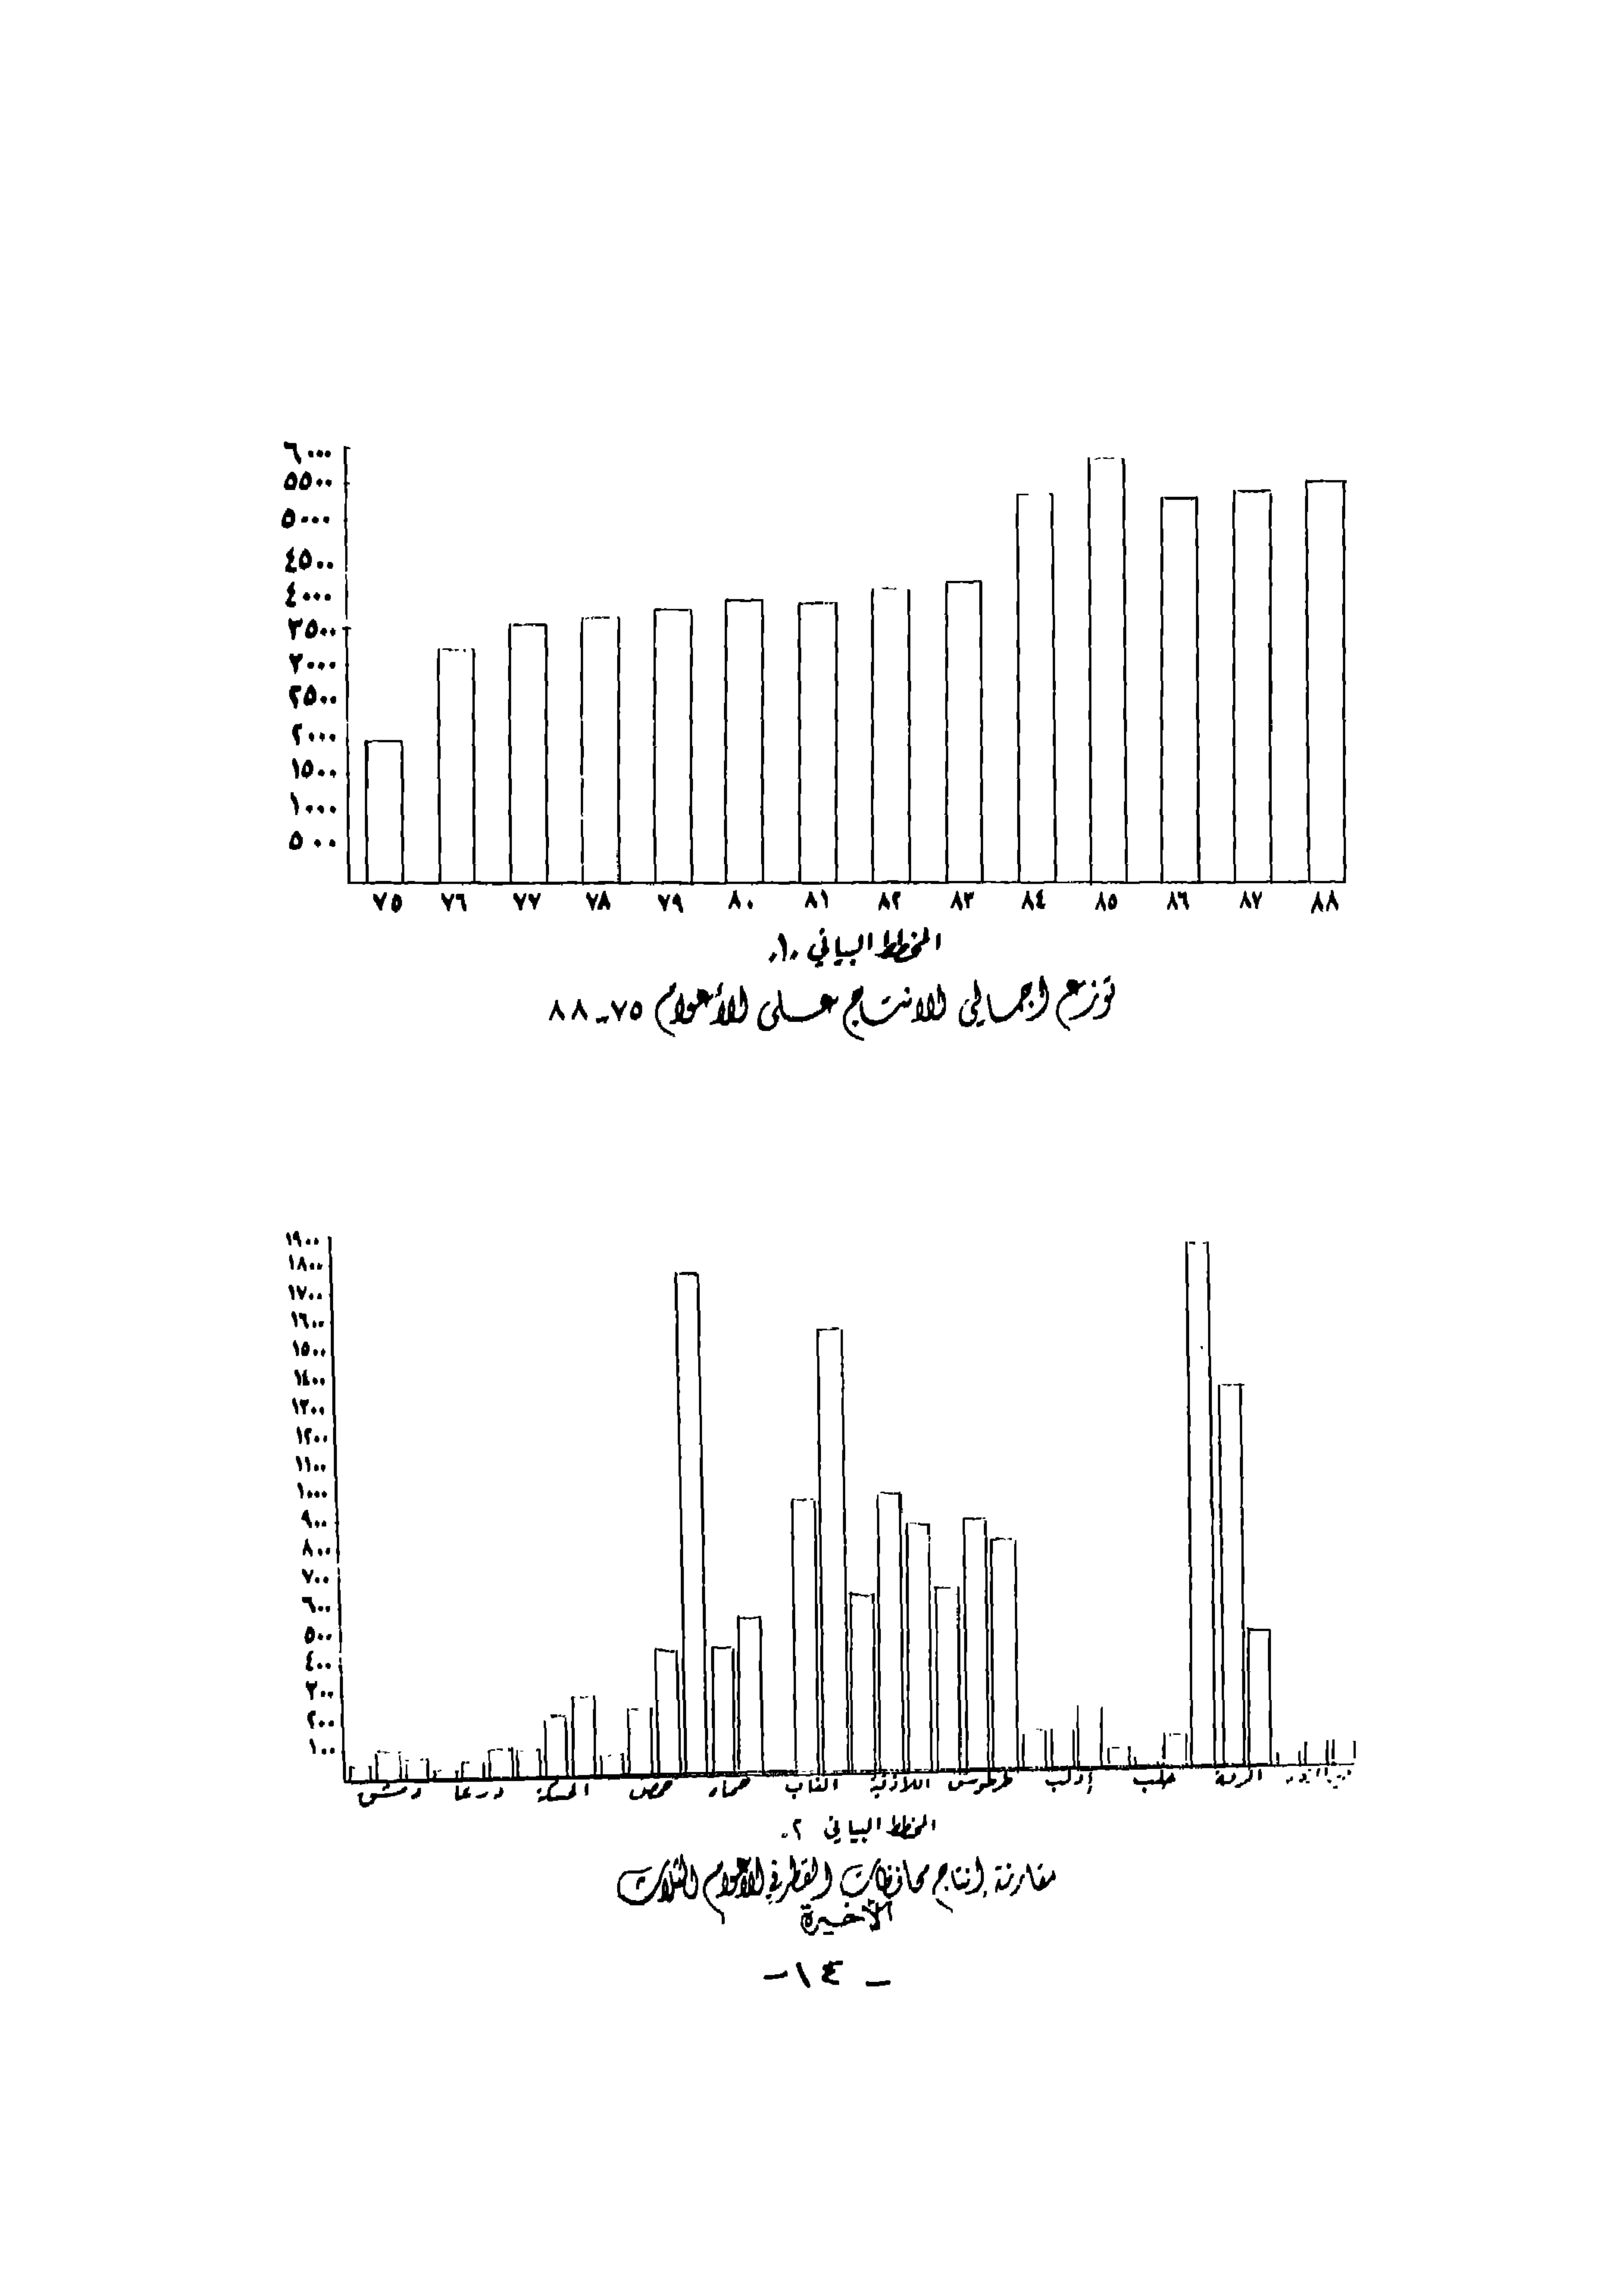 ٦٠٠٠
٥٥٠٠
٥٠٠٠
٤٥٠٠
٤٠٠٠
٣٥٠٠
٣٠٠٠
٢٥٠٠
٢٠٠٠
١٥٠٠
١٠٠٠
٥٠٠
٧٥ ٧٦ ٧٧ ٧٨ ٧٩ ٨٠ ٨١ ٨٢ ٨٣ ٨٤ ٨٥ ٨٦ ٨٧ ٨٨
المخطط البياني .١.
توزع اجمالي الانتاج على الأعوام ٧٥-٨٨
١٩٠٠
١٨٠٠
١٧٠٠
١٦٠٠
١٥٠٠
١٤٠٠
١٣٠٠
١٢٠٠
١١٠٠
١٠٠٠
٩٠٠
٨٠٠
٧٠٠
٦٠٠
٥٠٠
٤٠٠
٣٠٠
٢٠٠
١٠٠
دمشق درعا الحسكة حمص حماه الغاب اللاذقية طرطوس إدلب حلب الرقة
المخطط البياني ٢.
مقارنة إنتاج محافظات القطر في الأعوام الثلاث
الأخيرة
- ١٤-